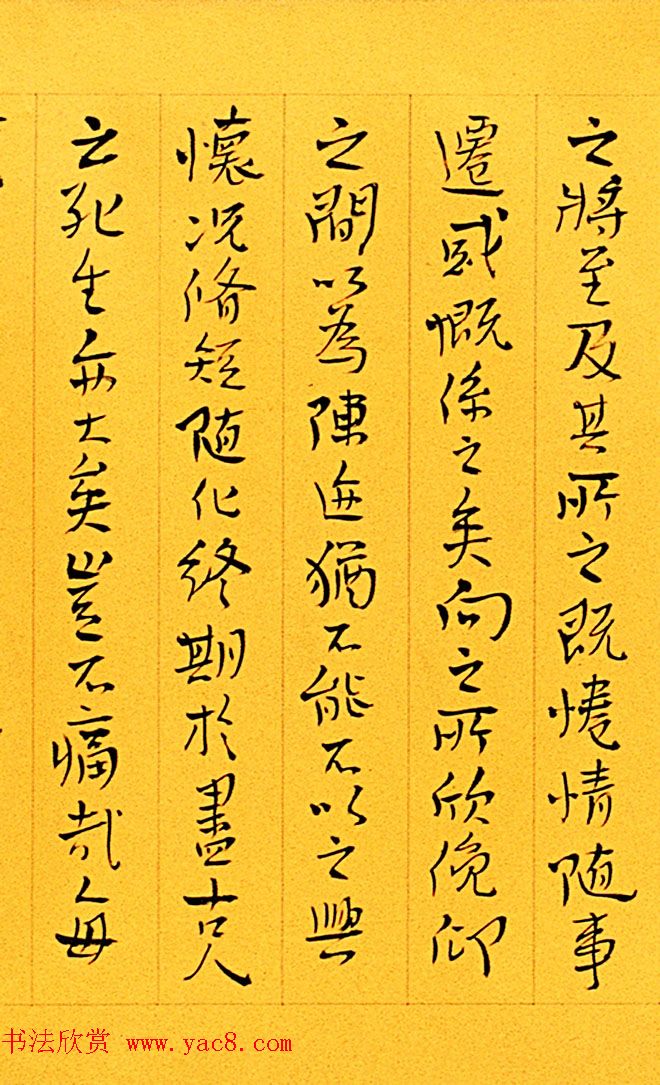 之將至及其所之既惓情随事
遷感慨係之矣向之所欣俛仰
之間以為陳迹猶不能不以之興
懷况脩短随化終期於盡古人
云死生亦大矣豈不痛哉每
书法欣赏 www.yac8.com